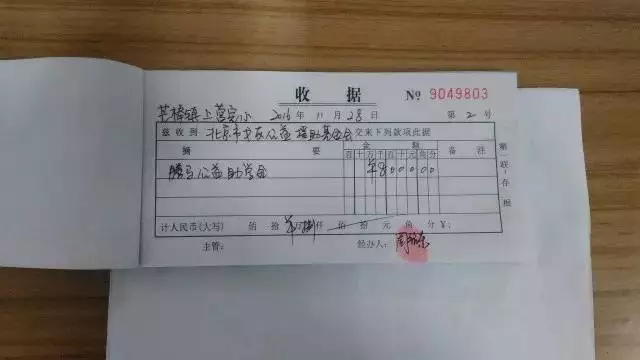 收 据 № 9049803
芒棒镇上营完小 2016 年 11 月 28 日 第 2 号
兹收到 北京市 公益 基金会 交来下列款项此据
摘 要 金 额 备 注
百 十 万 千 百 十 元 角 分
腾 公益助学金 ¥ 8 0 0 0 0 0
计人民币(大写) 佰 拾 万 捌 仟 佰 拾 元 角 分 ¥:
主管: 经办人:
第一联:存根